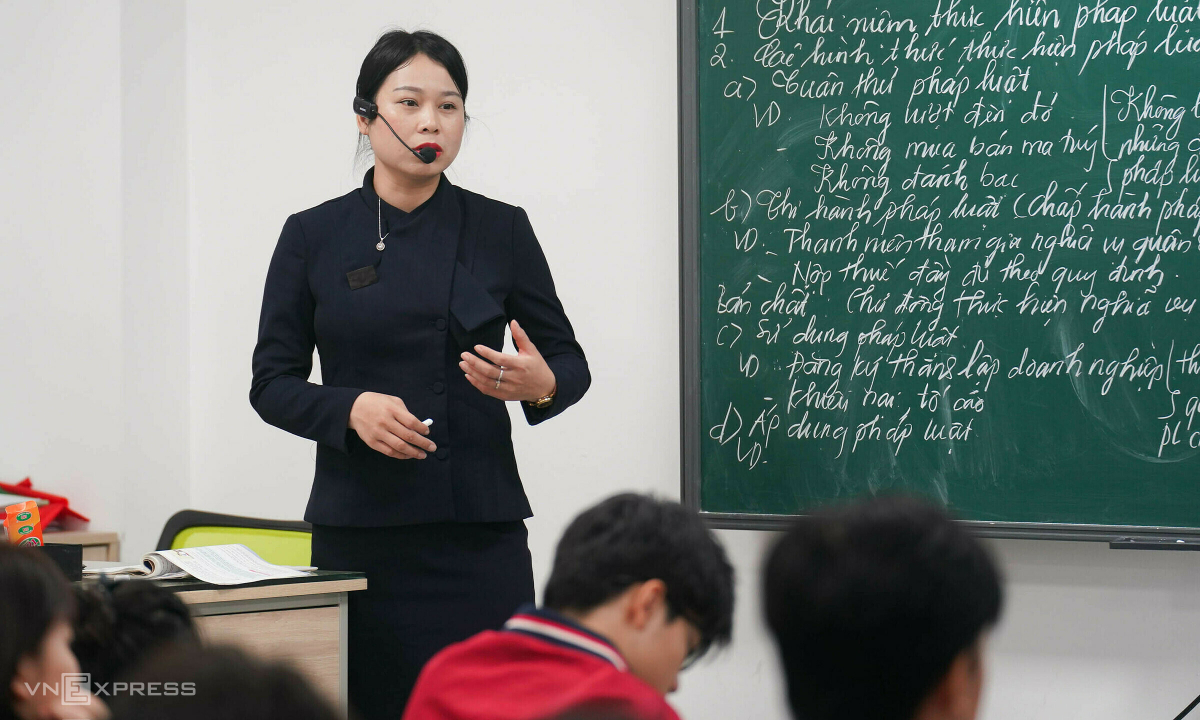 1 Khái niệm thực hiện pháp luật
2. Các hình thức thực hiện pháp luậ
a) Tuân thủ pháp luật
VD. Không vượt đèn đỏ
Không
Không mua bán ma túy
những
Không đánh bạc
pháp lu
b) Thi hành pháp luật (Chấp hành pháp
VD. Thanh niên tham gia nghĩa vụ quân
- Nộp thuế đầy đủ theo quy định.
Bản chất: Chủ động thực hiện nghĩa vụ
c) Sử dụng pháp luật
VD. Đăng ký thành lập doanh nghiệp
th
Khiếu nại tố cáo
d) Áp dụng pháp luật
VD.
VNEXPRESS